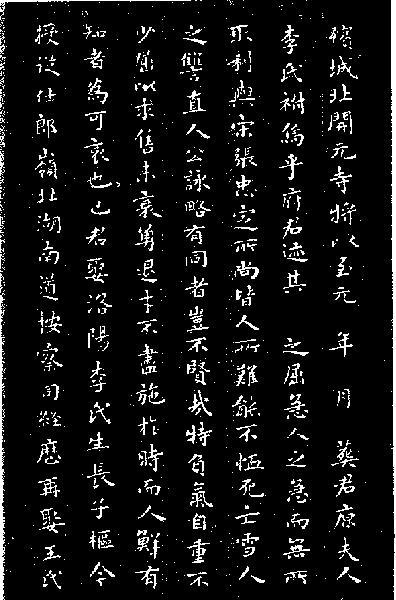 殯城北開元寺將以至元 年 月 葬君原夫人
李氏祔焉乎府君迹其 之屈急人之急而無所
不利與宋張忠定所尚皆人所難能不恤死士雪人
之讐直人公詠略有同者豈不賢哉特負氣自重不
少貶以求售未衰勇退才不盡施於時而人鮮有
知者為可哀也已君娶洛陽李氏生長子樞今
授從仕郎嶺北湖南道按察司經歷再娶王氏